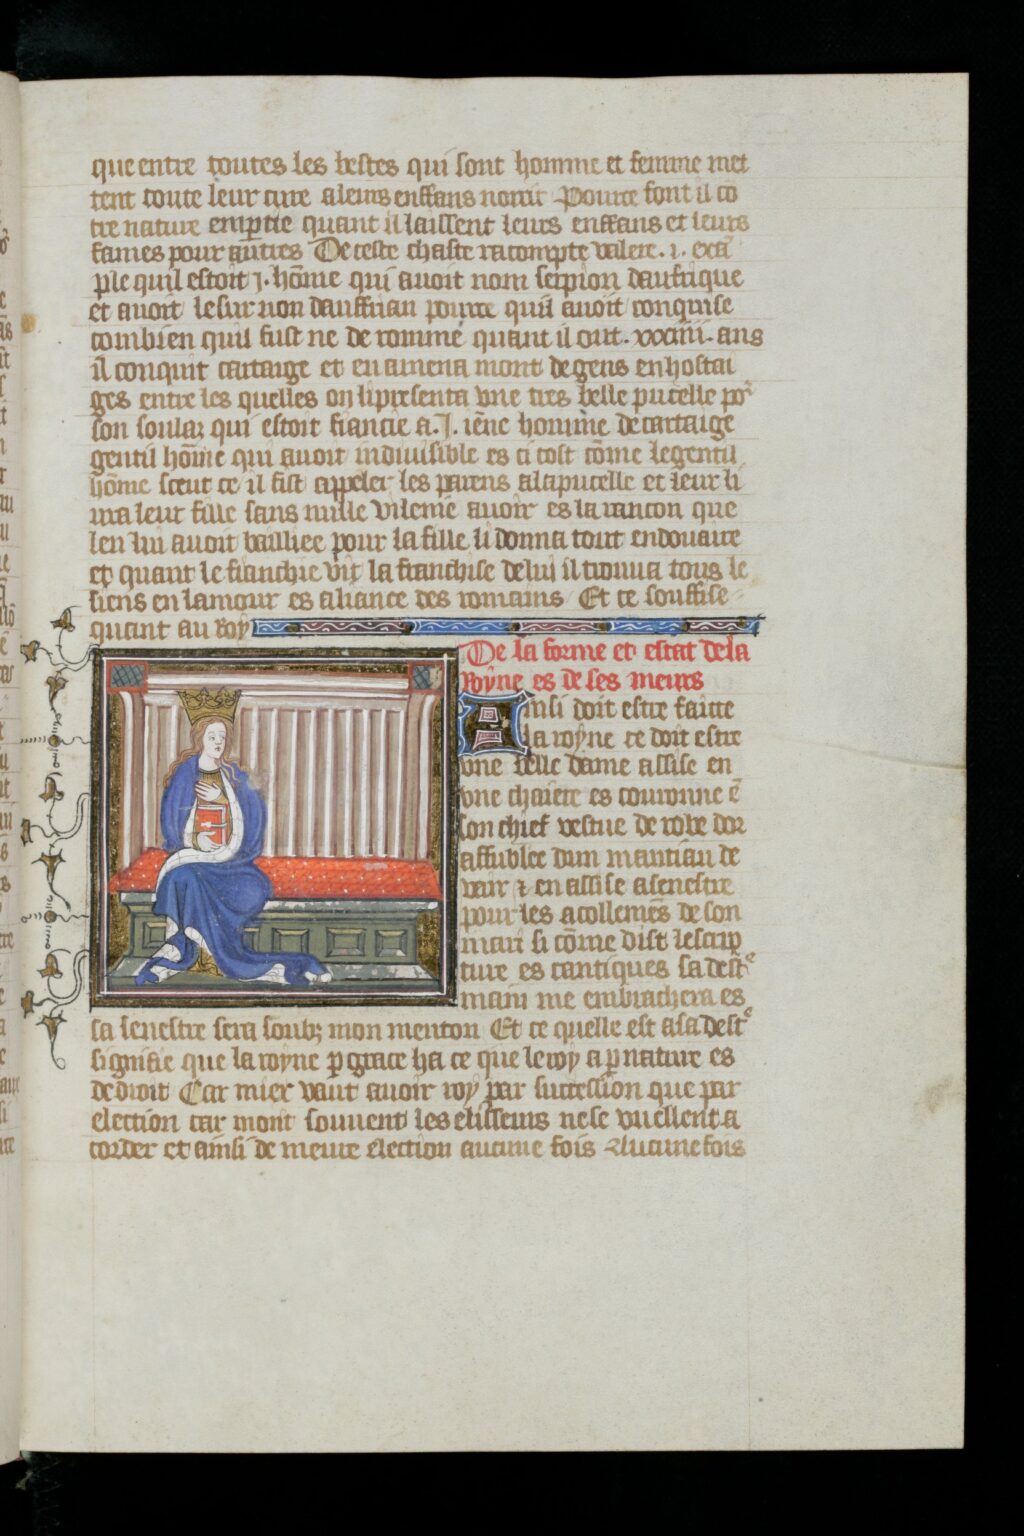 que entre toutes les bestes qui sont homme et femme met
tent toute leur cure a leurs enffans norrir Pource font il co
tre nature emp̃tie quant il laissent leurs enffans et leurs
fames pour autres De ceste chaste racompte valere .i. exã
ple quil estoit .j. hõme qui auoit nom scipion daufrique
et auoit le sur non dauffrian pource quil auoit conquise
combien quil fust ne de romme quant il out .xxiiii. ans
il conquit cartaige et en amena mont de gens en hostai
ges entre les quelles on li presenta vne tres belle pucelle por
son soulaz qui estoit fiancie a .J. iẽne homme de cartaige
gentil hõme qui auoit indiuisible es ci tost cõme le gentil
hõme sceut ce il fist appeler les parens a la pucelle et leur li
ura leur fille sans nulle vilenie auoir es la rancon que
len lui auoit bailliee pour la fille li donna tout en douaire
et quant le fianchie vit la franchise de lui il tourna tous le
siens en lamour es aliance des romains Et ce souffise
quant au Roy
De la forme et estat de la
Royne es de ses meurs
Ainsi doit estre faitte
la royne ce doit estre
vne belle dame assise en
vne chaiere es couronne ẽ
son chief vestue de robe dor
affublee dun mantiau de
vair & en assise a senestre
pour les acollemẽs de son
mari si cõme dist lescrip
ture es cantiques sa destre
main me embrachera es
sa senestre sera soubz mon menton Et ce quelle est a sa destre
signifie que la royne p grace ha ce que le roy a p nature es
de droit Car miex vaut auoir roy par succession que par
election car mont souuent les eliseurs ne se vuellent a
corder et ainsi demeure election aucune fois Aucune fois